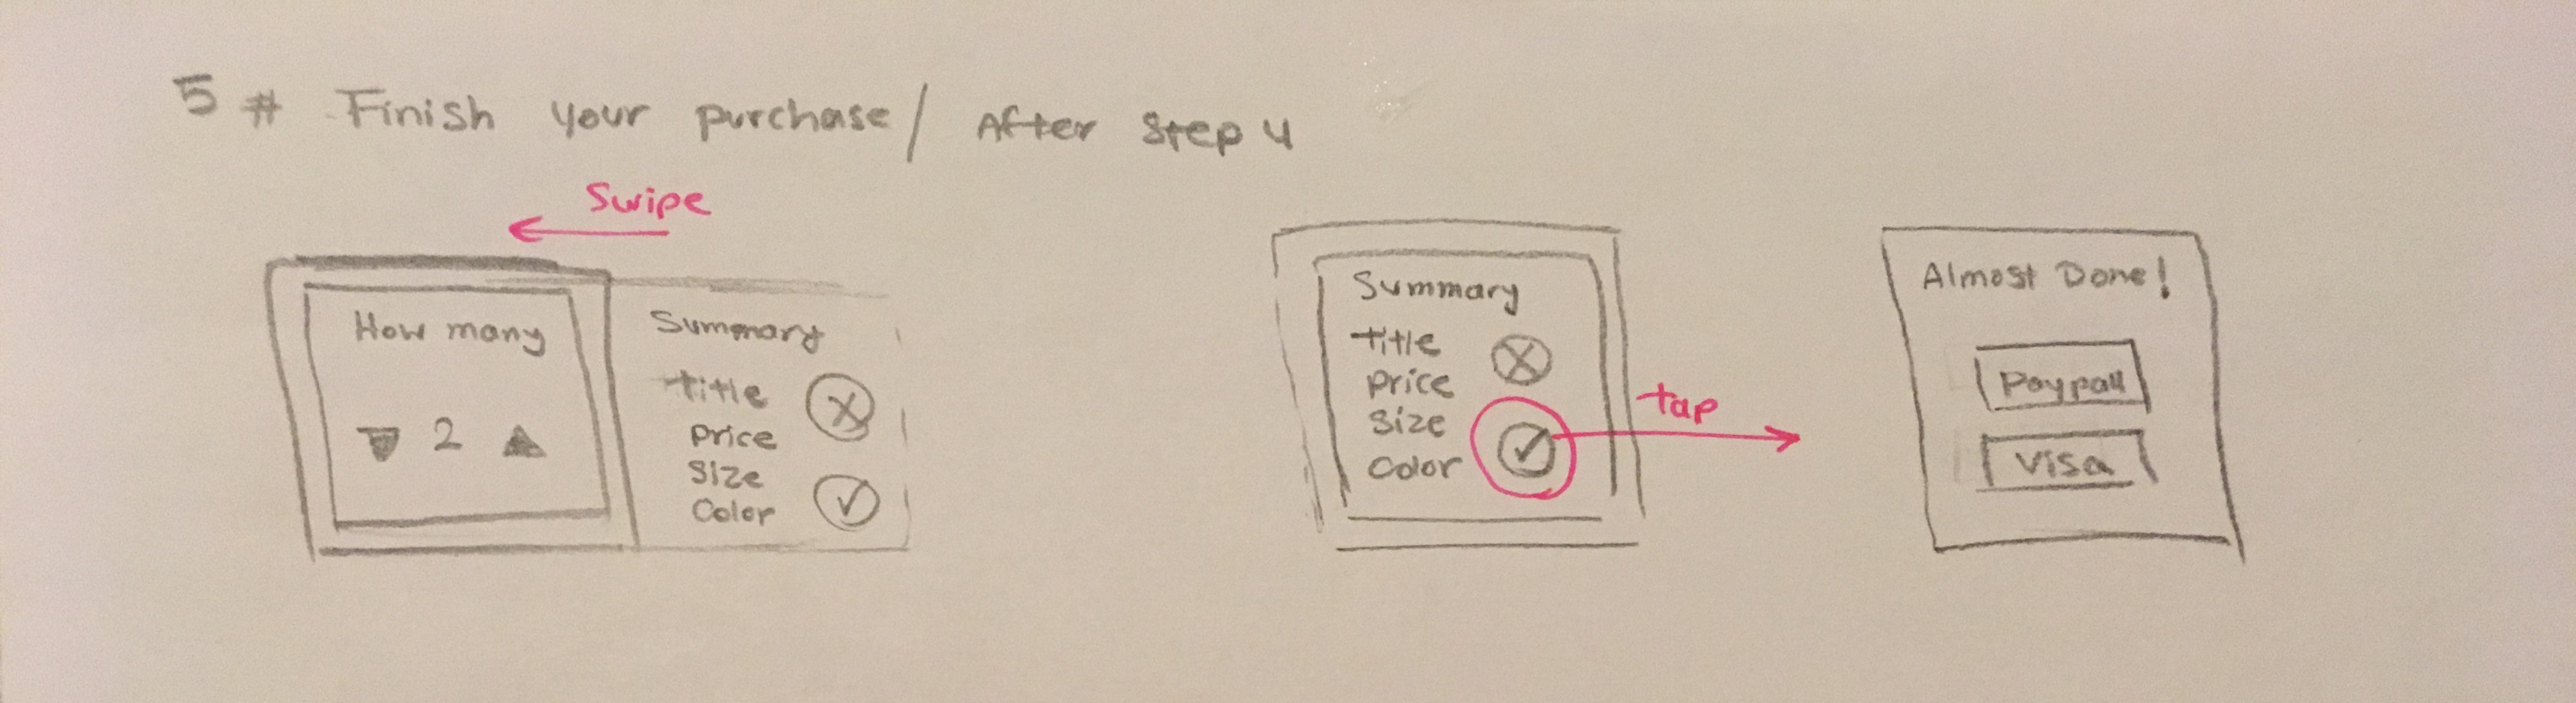 5 # Finish your purchase / After Step 4
Swipe
How many
2
Summary
Title
Price
Size
Color
Summary
Title
Price
Size
Color
tap
Almost Done!
Paypall
Visa